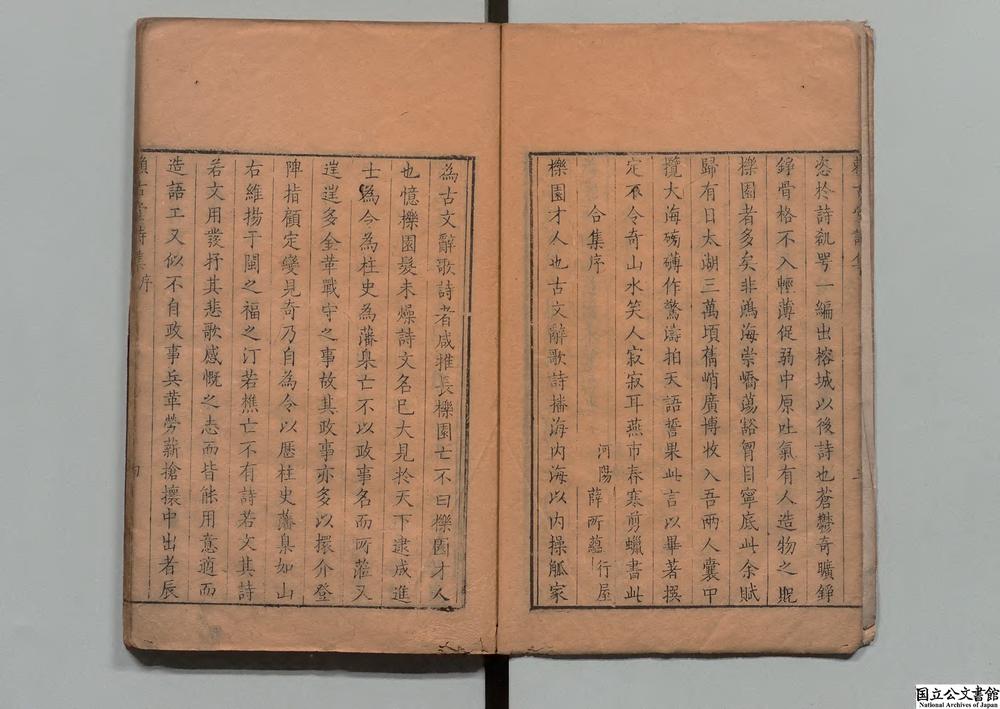 恣於詩刻咢一編出榕城以後詩也蒼欝奇曠錚
錚骨格不入輕薄促弱中原吐氣有人造物之貺
櫟園者多矣非鴻海崇嶠蕩豁胷目寧底此余賦
歸有日太湖三萬頃舊峭廣博收入吾兩人囊中
攬大海磅礴作驚濤拍天語誓果此言以畢著撰
定不令奇山水笑人寂寂耳燕市春寒剪蠟書此
河陽薛所蘊行屋
合集序
櫟園才人也古文辭歌詩播海內海以內操觚家
為古文辭歌詩者咸推長櫟園亡不曰櫟園才人
也憶櫟園髮未燥詩文名已大見於天下逮成進
士為令為柱史為藩臬亡不以政事名而所蒞又
逞逞多金革戰守之事故其政事亦多以擐介登
陴指顧定變見奇乃自為令以歷柱史藩臬如山
右維揚于閩之福之汀若樵亡不有詩若文其詩
若文用發抒其悲歌感慨之志而皆能用意適而
造語工又似不自政事兵革勞薪搶攘中出者辰
賴古堂詩集 序
国立公文書館
National Archives of Japan